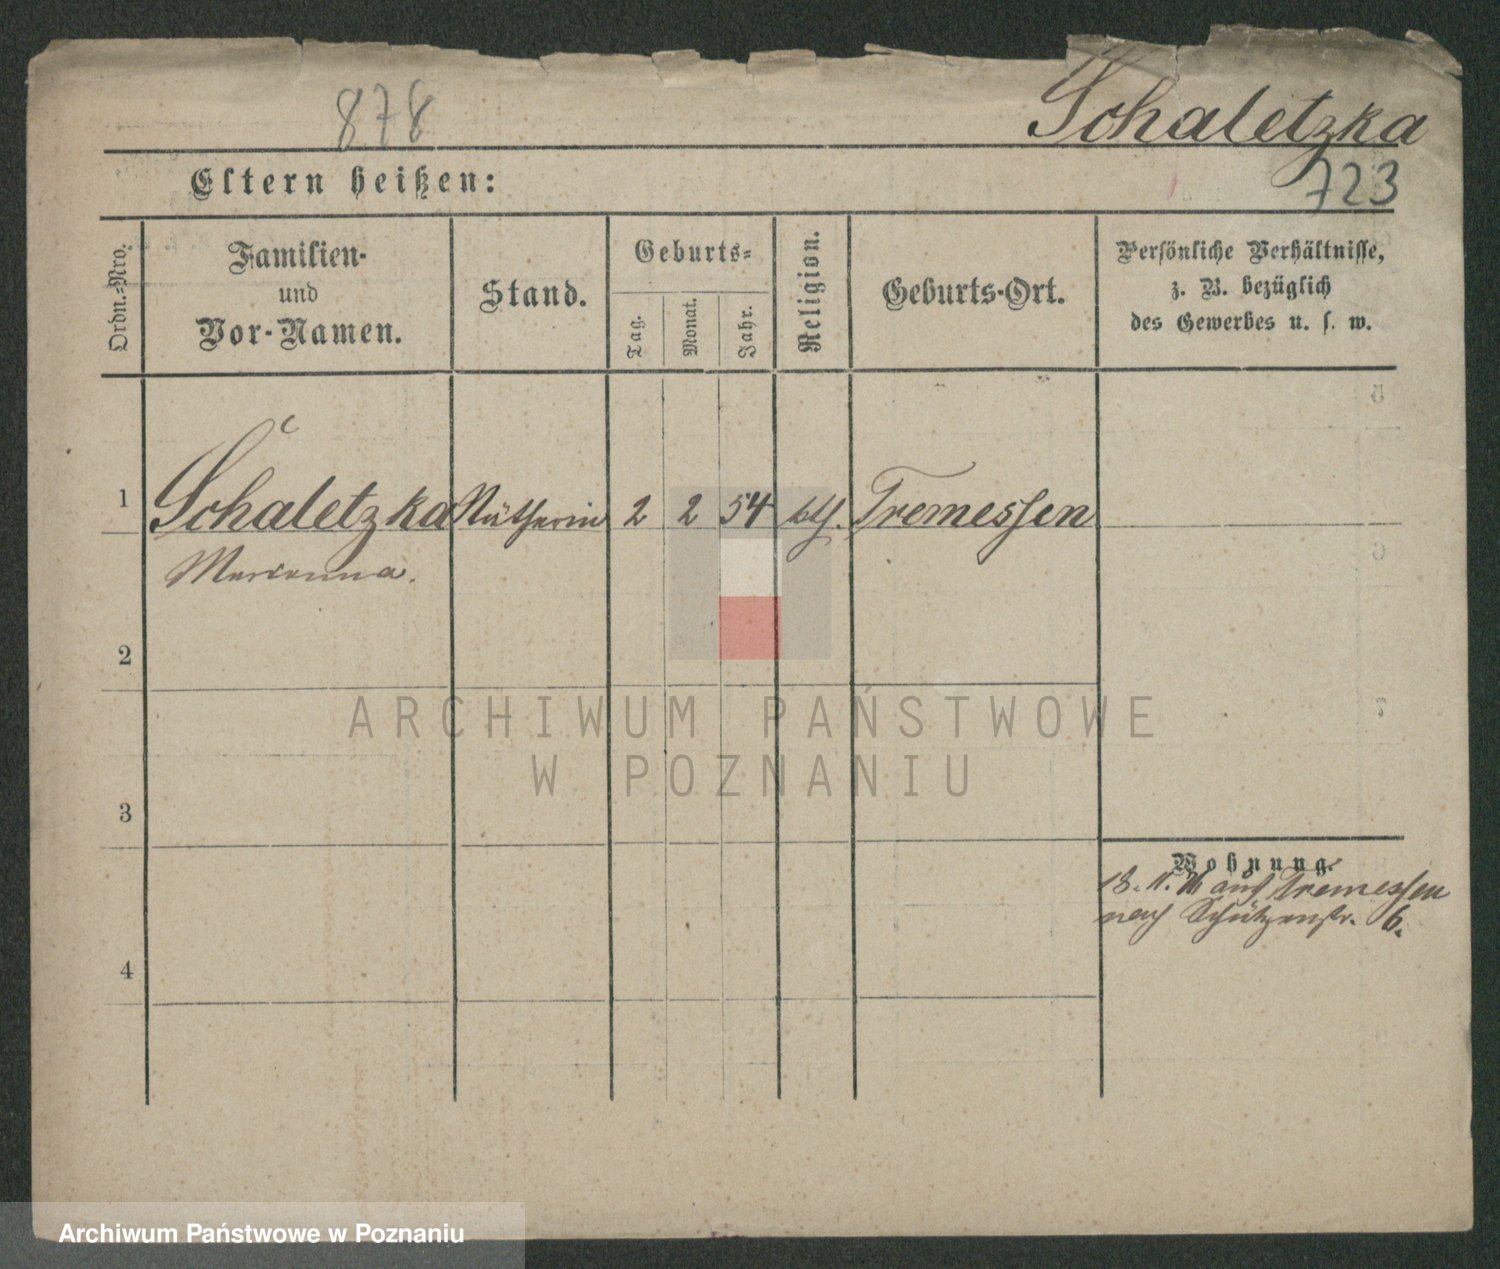 878
Schaletzka
723
Eltern heißen:
Ordn.-Nro.
Familien-
und
Vor-Namen.
Stand.
Geburts-
Tag.
Monat.
Jahr.
Religion.
Geburts-Ort.
Persönliche Verhältnisse,
z. B. bezüglich
des Gewerbes u. s. w.
1 Schaletzka Nätherin 2 2 54 kth. Tremessen
Marianna.
2
ARCHIWUM PAŃSTWOWE
W POZNANIU
3
Wohnung.
aus Tremessen
nach Schützenstr. 6.
4
Archiwum Państwowe w Poznaniu